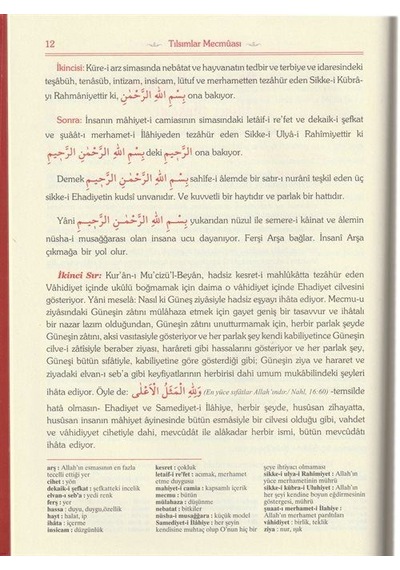 12
Tılsımlar Mecmûası
İkincisi: Küre-i arz simasında nebâtat ve hayvanatın tedbir ve terbiye ve idaresindeki
teşâbüh, tenâsüb, intizam, insicam, lütuf ve merhametten tezâhür eden Sikke-i Kübra-
yı Rahmâniyettir ki, بِسْمِ اللّٰهِ الرَّحْمٰنِ ona bakıyor.
Sonra: İnsanın mâhiyet-i camiasının simasındaki letâif-i re'fet ve dekaik-i şefkat
ve şuâât-ı merhamet-i İlâhiyeden tezâhür eden Sikke-i Ulyâ-i Rahîmiyettir ki
بِسْمِ اللّٰهِ الرَّحْمٰنِ الرَّحِيمِ deki الرَّحِيمِ ona bakıyor.
Demek بِسْمِ اللّٰهِ الرَّحْمٰنِ الرَّحِيمِ sahîfe-i âlemde bir satır-ı nurânî teşkil eden üç
sikke-i Ehadiyetin kudsî unvanıdır. Ve kuvvetli bir haytıdır ve parlak bir hattıdır.
Yâni بِسْمِ اللّٰهِ الرَّحْمٰنِ الرَّحِيمِ yukarıdan nüzul ile semere-i kâinat ve âlemin
nüsha-i musağğarası olan insana ucu dayanıyor. Ferşi Arşa bağlar. İnsanî Arşa
çıkmağa bir yol olur.
İkinci Sır: Kur'ân-ı Mu'cizü'l-Beyân, hadsiz kesret-i mahlûkâtta tezâhür eden
Vâhidiyet içinde ukûlü boğmamak için daima o vâhidiyet içinde Ehadiyet cilvesini
gösteriyor. Yâni meselâ: Nasıl ki Güneş ziyâsiyle hadsiz eşyayı ihâta ediyor. Mecmu-u
ziyâsındaki Güneşin zâtını mülâhaza etmek için gayet geniş bir tasavvur ve ihâtalı
bir nazar lazım olduğundan, Güneşin zâtını unutturmamak için, herbir parlak şeyde
Güneşin zâtını, aksi vasıtasiyle gösteriyor ve her parlak şey kendi kabiliyetince Güneşin
cilve-i zâtîsiyle beraber ziyası, harâreti gibi hassalarını gösteriyor ve her parlak şey,
Güneşi bütün sıfâtiyle, kabiliyetine göre gösterdiği gibi; Güneşin ziya ve hararet ve
ziyadaki elvan-ı seb'a gibi keyfiyatlarının herbirisi dahi umum mukâbilindeki şeyleri
ihâta ediyor. Öyle de: وَلِلّٰهِ الْمَثَلُ الْاَعْلٰى (En yüce sıfâtlar Allah'ındır./ Nahl, 16:60) -temsilde
hatâ olmasın- Ehadiyet ve Samediyet-i İlâhiye, herbir şeyde, hususan zîhayatta,
hususan insanın mâhiyet âyinesinde bütün esmâsiyle bir cilvesi olduğu gibi, vahdet
ve vâhidiyyet cihetiyle dahi, mevcûdât ile alâkadar herbir ismi, bütün mevcûdâtı
ihâta ediyor.
arş : Allah'ın esmasının en fazla
tecelli ettiği yer
cihet : yön
dekaik-i şefkat : şefkatteki incelik
elvan-ı seb'a : yedi renk
ferş : yer
hassa : duyu, duygu,özellik
hayt : halat, ip
ihâta : içerme
insicam : düzgünlük
kesret : çokluk
letaif-i re'fet : acımak, merhamet
etme duygusu
mahiyet-i camia : kapsamlı içerik
mecmu : bütün
mülahaza : düşünme
nebatat : bitkiler
nüsha-i musağğara : küçük model
Samediyet-i İlahiye : her şeyin
kendisine muhtaç olup O'nun hiç bir
şeye ihtiyacı olmaması
sikke-i ulya-i Rahimiyet : Allah'ın
yüce merhametinin mührü
sikke-i kübra-i Uluhiyet : Allah'ın
her şeyi kendine boyun eğdirmesinin
göstergesi, mührü
şuaat-ı merhamet-i İlahiye :
Allah'ın merhamet parıltıları
vâhidiyet : birlik, teklik
ziya : nur, ışık